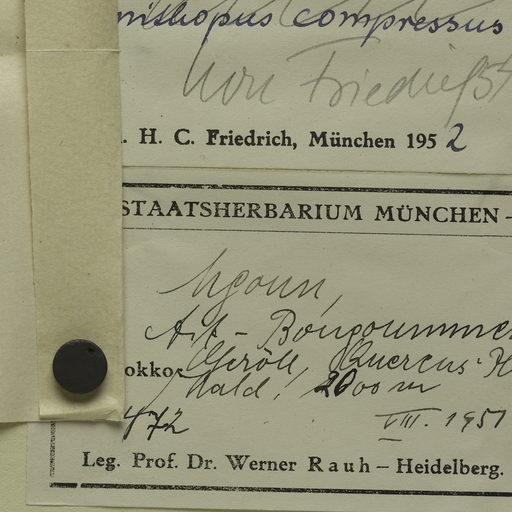 nithopus compressus
non Friedrich
. H. C. Friedrich, München 1952
STAATSHERBARIUM MÜNCHEN –
Ngoun,
Ait – Bougoummez
okko: Geröll, Quercus-
Wald, 2000 m
472 VIII. 1951
Leg. Prof. Dr. Werner Rauh – Heidelberg.